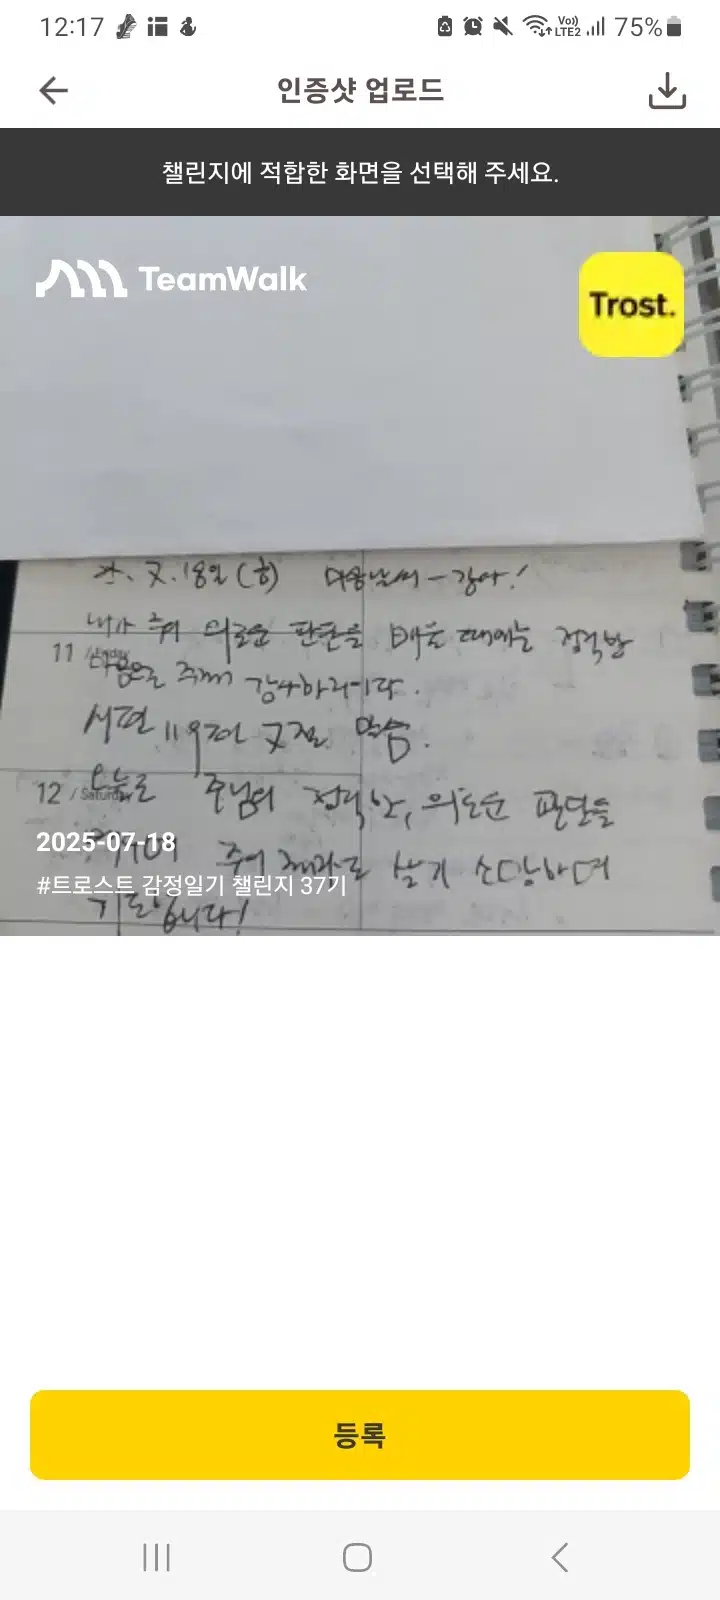 12:17
Vo))
LTE2
75%
인증샷 업로드
챌린지에 적합한 화면을 선택해 주세요.
TeamWalk
Trost.
7.18일
내가 주의 의로운 판단을 배울 때에는 정직한
11
마음으로 주께 감사하리이다.
시편 119편 7절 말씀.
12 / Saturday
오늘도 주님의 정직한, 의로운 판단을
2025-07-18
주의 살기 소망하며
#트로스트 감정일기 챌린지 37기
기도합니다!
등록